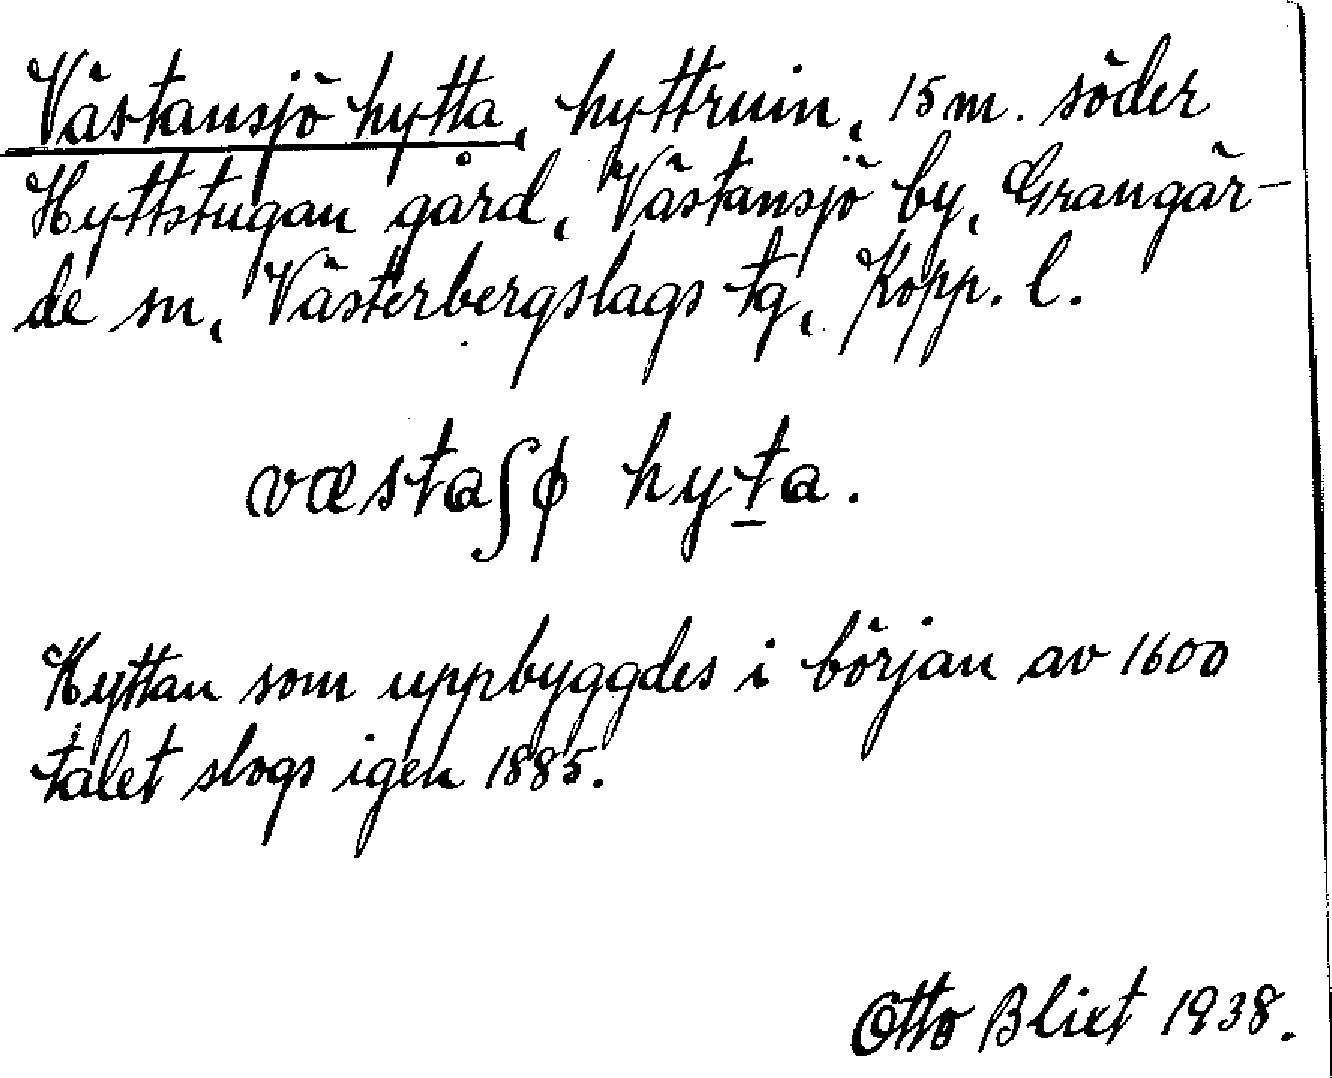 Västansjö hytta, hyttruin, 15 m. söder
Hyttstugan gård, Västansjö by, Grangär-
de sn, Västerbergslags tg, Kopp. l.
væstaʃφ hyt̲a.
Hyttan som uppbyggdes i början av 1600
talet slogs igen 1885.
Otto Blixt 1938.